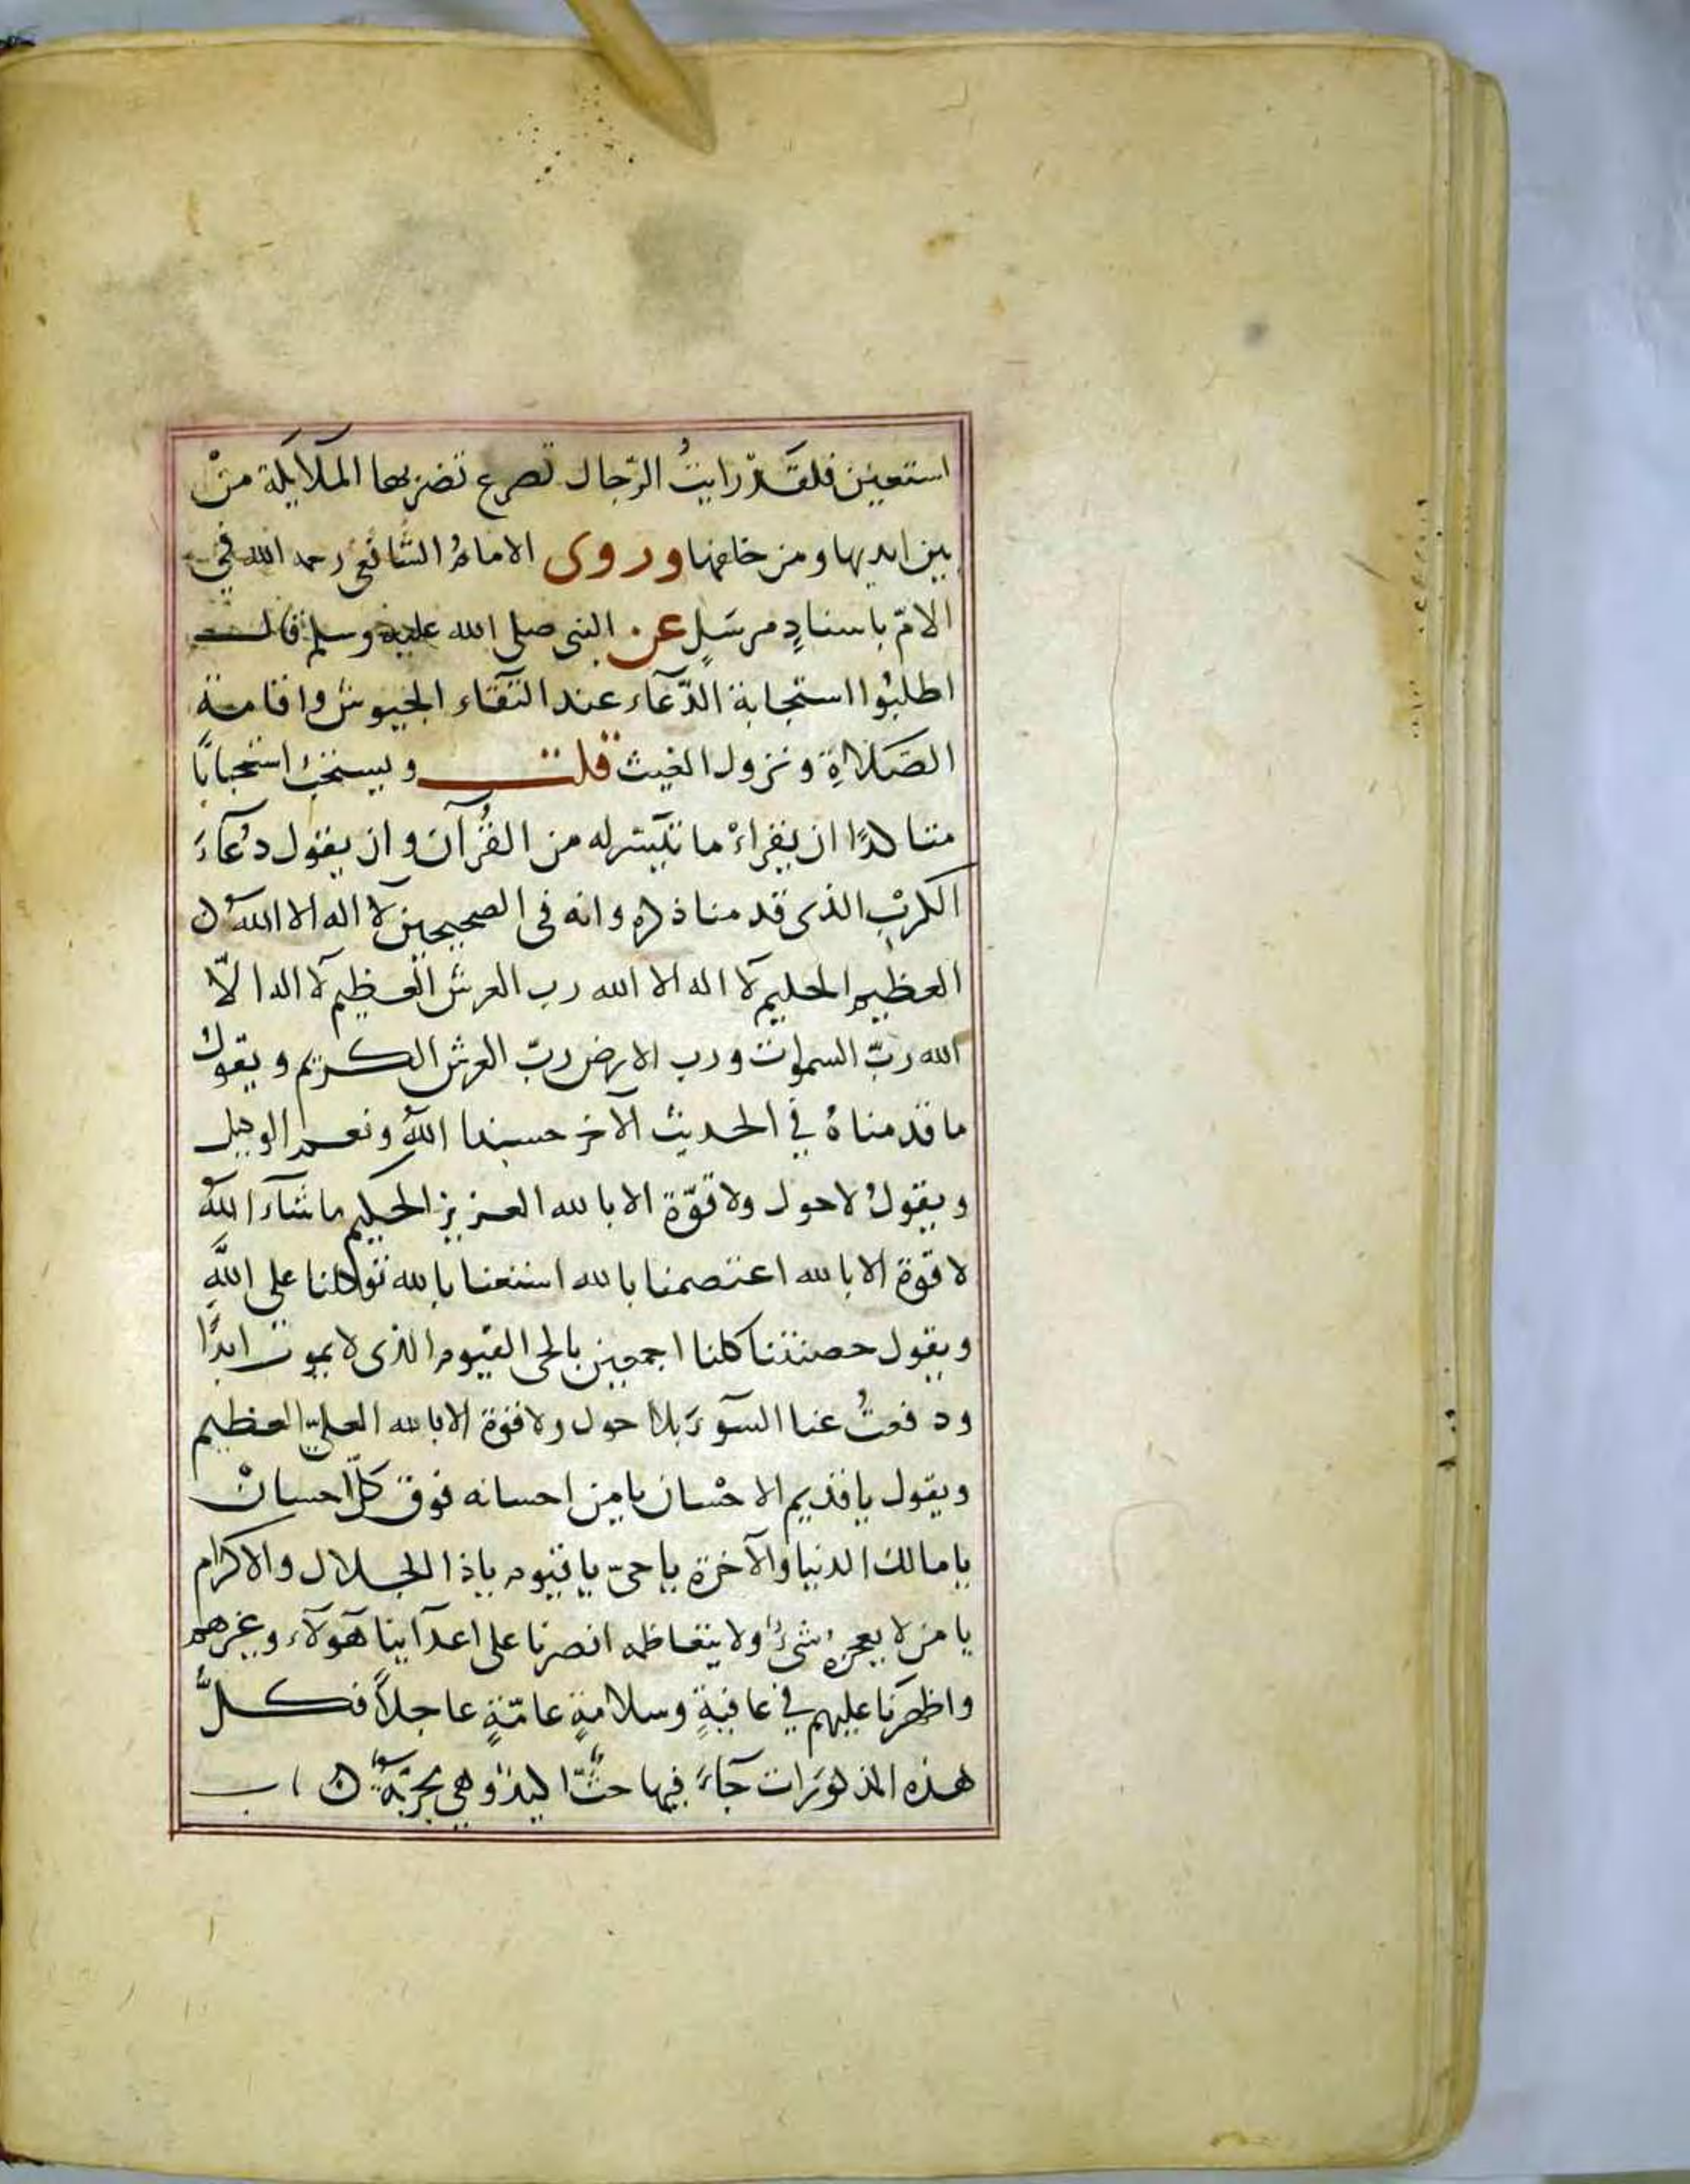 استعين فلقَدْ رايتُ الرّجال تصرع تضربها الملايكة منْ
بين ايديها ومن خلفها وروى الامامُ الشّافعى رحمه الله في
الامّ باسنادٍ مرسَلٍ عن النبى صلى الله عليه وسلم قال
اطلبُوا استجابة الدّعاء عند التقاء الجيوش واقامة
الصّلاةِ ونزول الغيث قلت ويستحبّ استحبابًا
متاكدًا ان يقراءَ ما تيسّر له من القُرآن وان يقول دعآءَ
الكربْ الذى قدمنا ذكره وانه فى الصحيحين لآ اله الا اللهُ
العظيم الحليم لآ اله الا الله رب العرش العظيم لآ اله الّا
الله ربّ السموات ورب الارض ربّ العرش الكريم ويقولُ
ما قدمناهُ في الحديث الآخر حسبنا اللهُ ونعم الوكيل
ويقولُ لاحول ولا قوّة الا بالله العزيز الحكيم ما شآء اللهُ
لا قوّة الا بالله اعتصمنا بالله استعنا بالله توكلنا على اللهِ
ويقول حصنتنا كلنا اجمعين بالحى القيوم الذى لا يموت ابدًا
ودفعتُ عنا السوّءَ بلا حول ولا قوة الا بالله العلىّ العظيم
ويقول يا قديم الاحْسان يا من احسانه فوق كلّ احسانْ
يا مالك الدنيا والآخرة يا حىّ يا قيوم ياذا الجلال والاكرام
يا من لا يعجزه شىءُ ولا يتعاظمه انصرنا على اعدآينا هَولآء وغيرهم
واظهرنا عليهم في عافيةٍ وسلامةٍ عامّةٍ عاجلاً فكلُّ
هذه المذكورات جآءَ فيها حثٌّ اكيدٌ وهى مجرّبةٌ